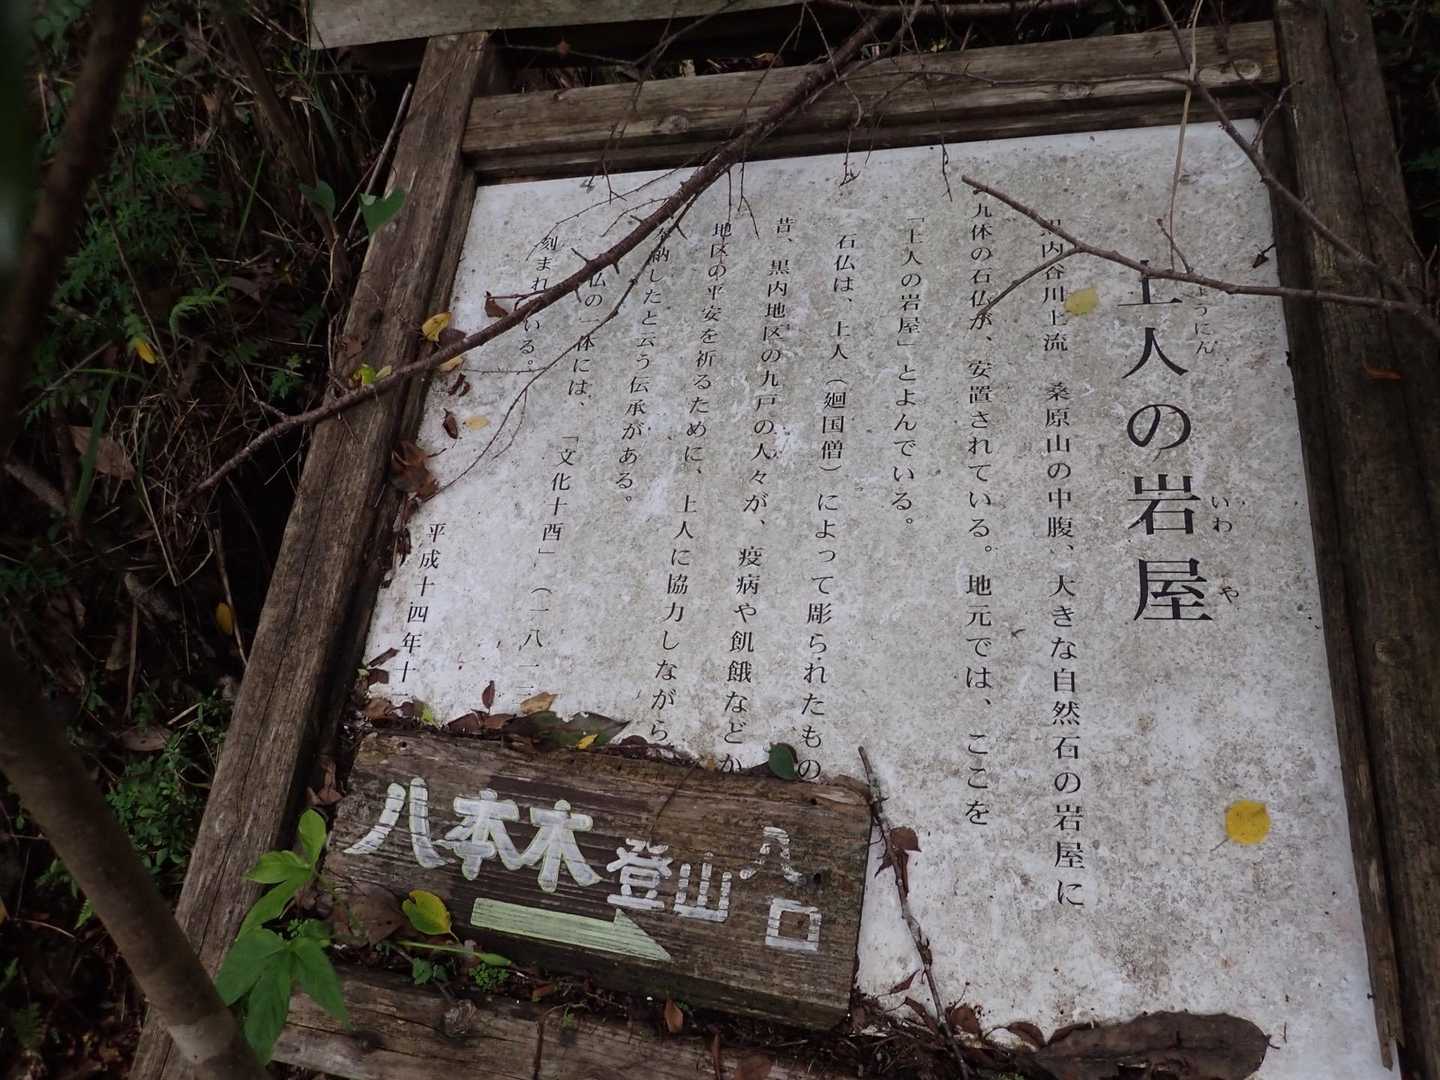 上人の岩屋
うにん
いわ
や
内谷川上流 桑原山の中腹、大きな自然石の岩屋に
九体の石仏が、安置されている。地元では、ここを
「上人の岩屋」とよんでいる。
石仏は、上人（廻国僧）によって彫られたもの
昔、黒内地区の九戸の人々が、疫病や飢餓などか
地区の平安を祈るために、上人に協力しながら
奉納したと云う伝承がある。
仏の一体には、「文化十酉」（一八一三
刻まれ いる。
平成十四年十
八本木登山入口